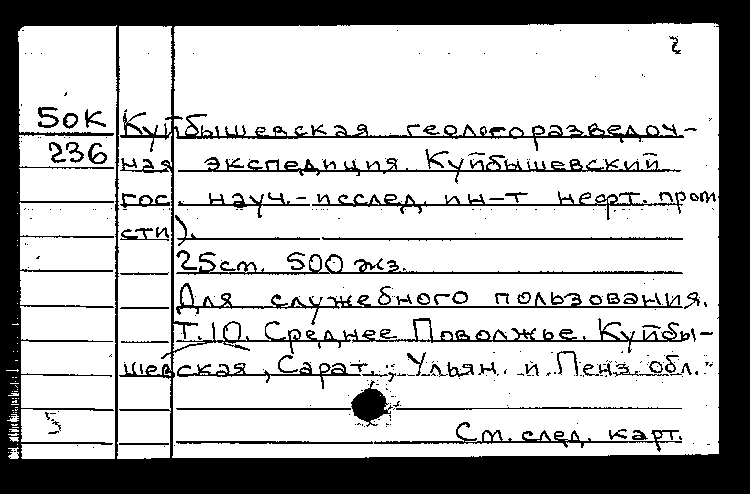 2
50К Куйбышевская геологоразведоч-
236 ная экспедиция. Куйбышевский
гос. науч.-исслед. ин-т нефт. пром
сти).
25см. 500 экз.
Для служебного пользования.
Т.10. Среднее Поволжье. Куйбы-
шевская, Сарат., Ульян. и Пенз. обл.-
5
См. след. карт.